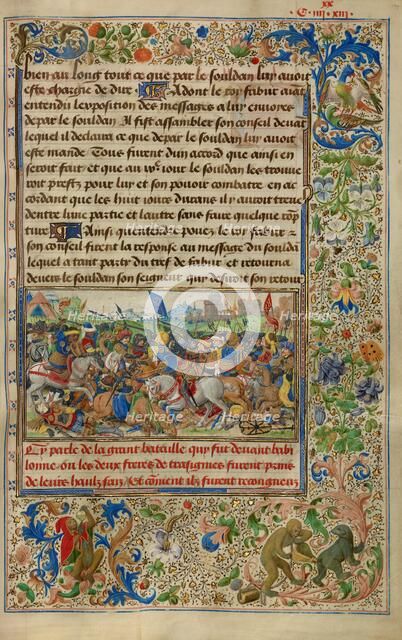 xx
C iiii xiii
bien au long tout ce que par le souldan luy auoit
este charge de dire Adont le roy fabur aiāt
entendu lexposition des messages a luy enuoies
depar le souldan Il fist assembler son conseil deuāt
lequel il declaira ce que depar le souldan luy auoit
este mande Tous furent dun accord que ainsi en
seroit fait et que au iour le souldan les trouue
roit prestz pour luy et son pouoir combatre en ac
cordant que les huit iours durans il y auoit treu
dentre lune partie et lautre sans faire quelque rōp
ture Ainsi quentendre pouez le roy fabur
son conseil firent la response au message du souldā
lequel a tant party du tref de fabur et retourna
deuers le souldan son seigneur quy desiroit son retour
Cy parle de la grant bataille quy fut deuant babi
lonne ou les deux freres de trasignies furent prins
de leurs haulz fais / et cōment ilz furent recongneuz
Heritage
Heritage
Heritage
Heritage